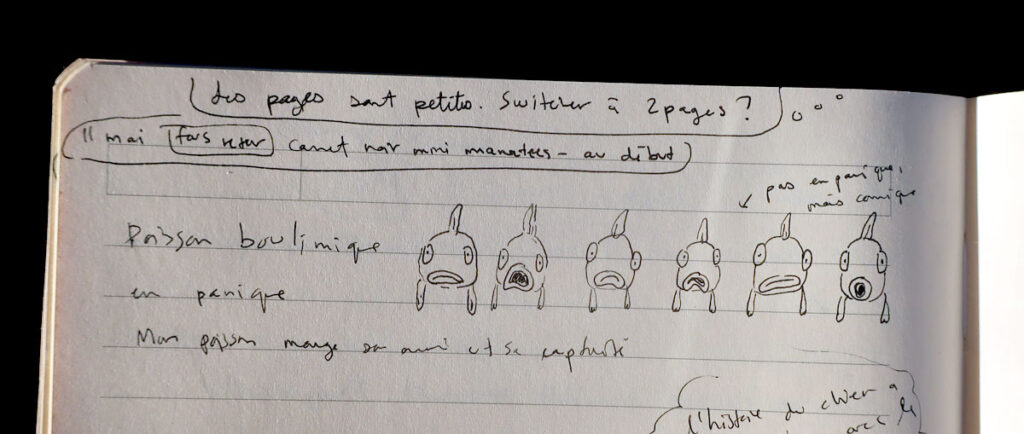 Les pages sont petites. Switcher à 2 pages ?
11 mai carnet noir mini manatees - au début
pas en panique,
mais comique
Poisson boulimique
en panique
Mon poisson mange son ami et se
L'histoire du
avec